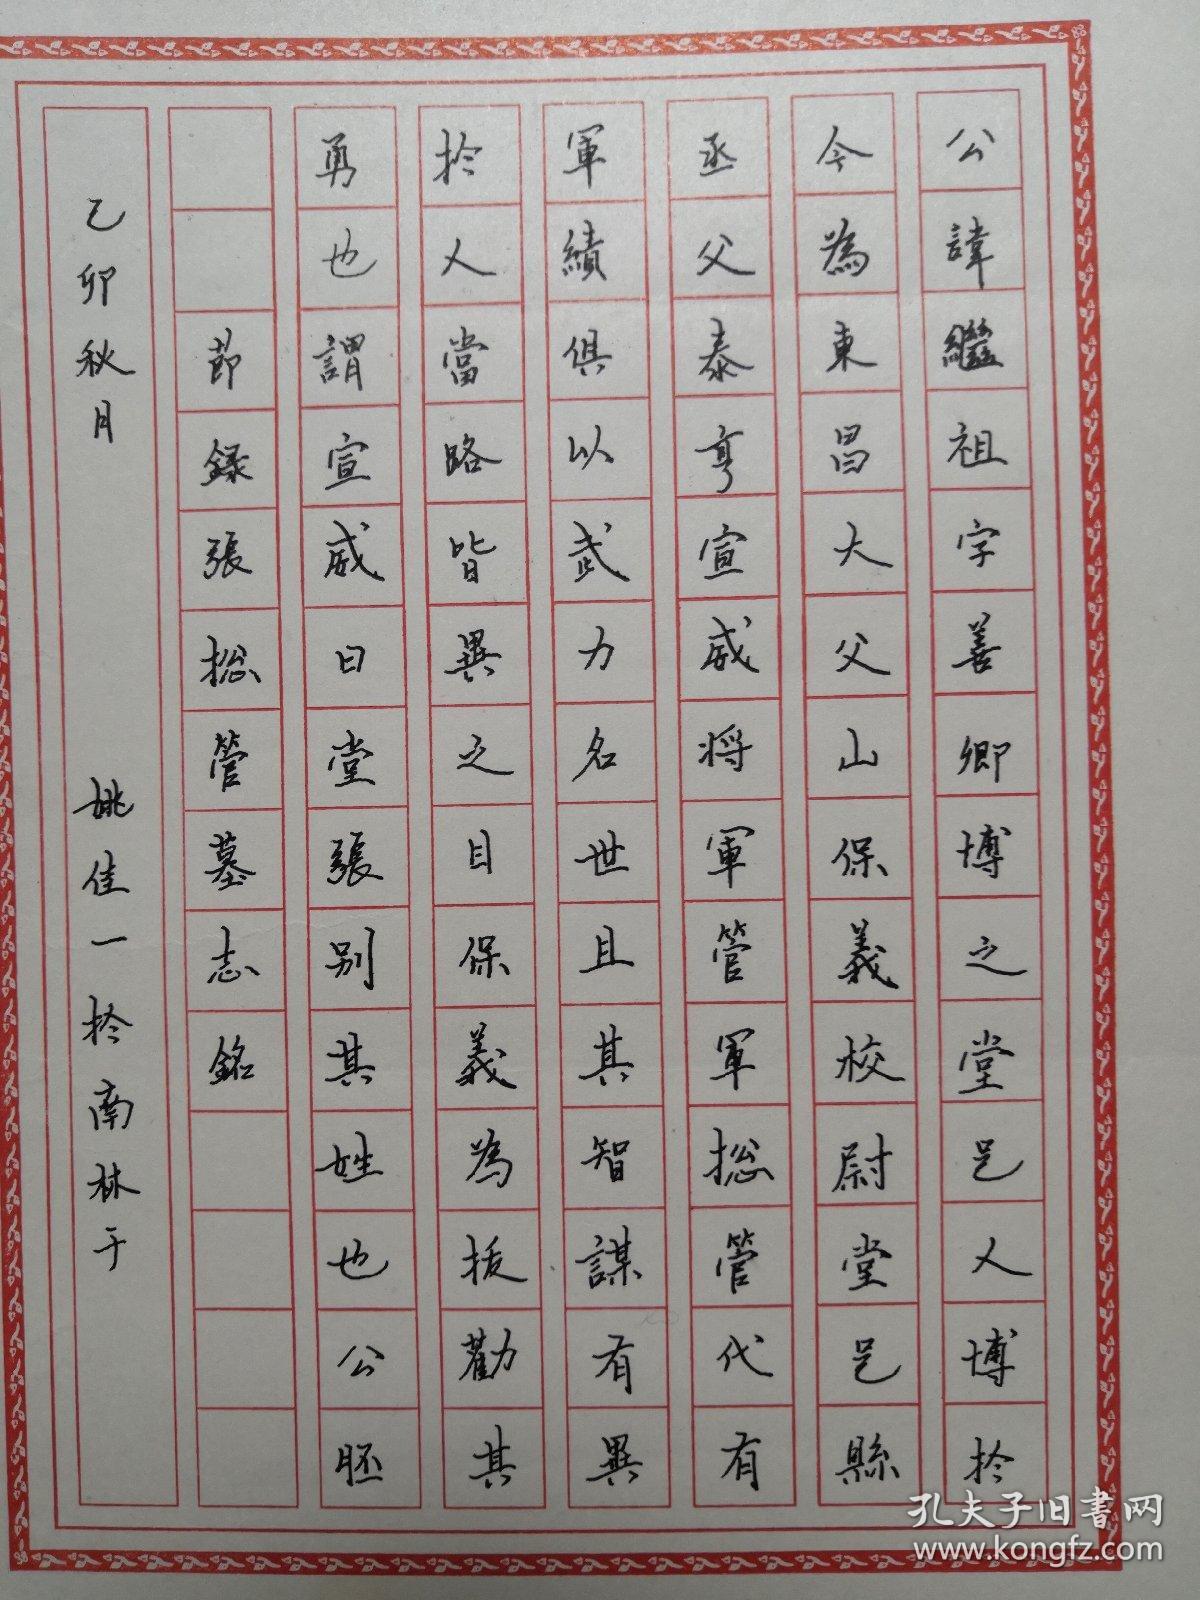 公諱繼祖字善卿博之堂邑人博扵
今為東昌大父山保義校尉堂邑縣
丞父泰亨宣威将軍管軍捴管代有
軍績俱以武力名世且其智謀有異
扵人當路皆異之目保義為拔勸其
勇也謂宣威曰堂張别其姓也公胚
節録張捴管墓志銘
乙卯秋月 姚佳一扵南林于
孔夫子旧書网
www.kongfz.com